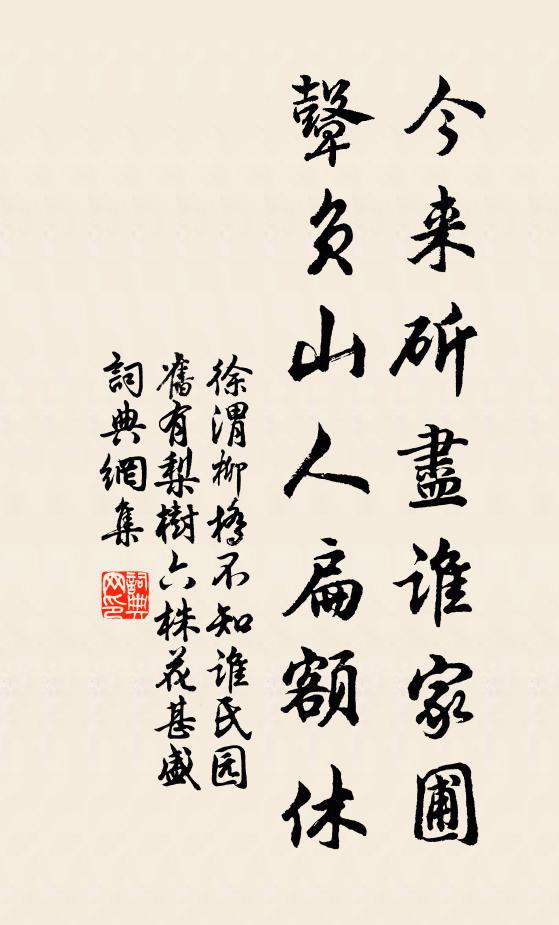 今来斫盡谁家圃
负山人扁額休
徐渭柳橋不知谁氏园
舊有梨樹六株花甚盛
詞典網集
詞典网印